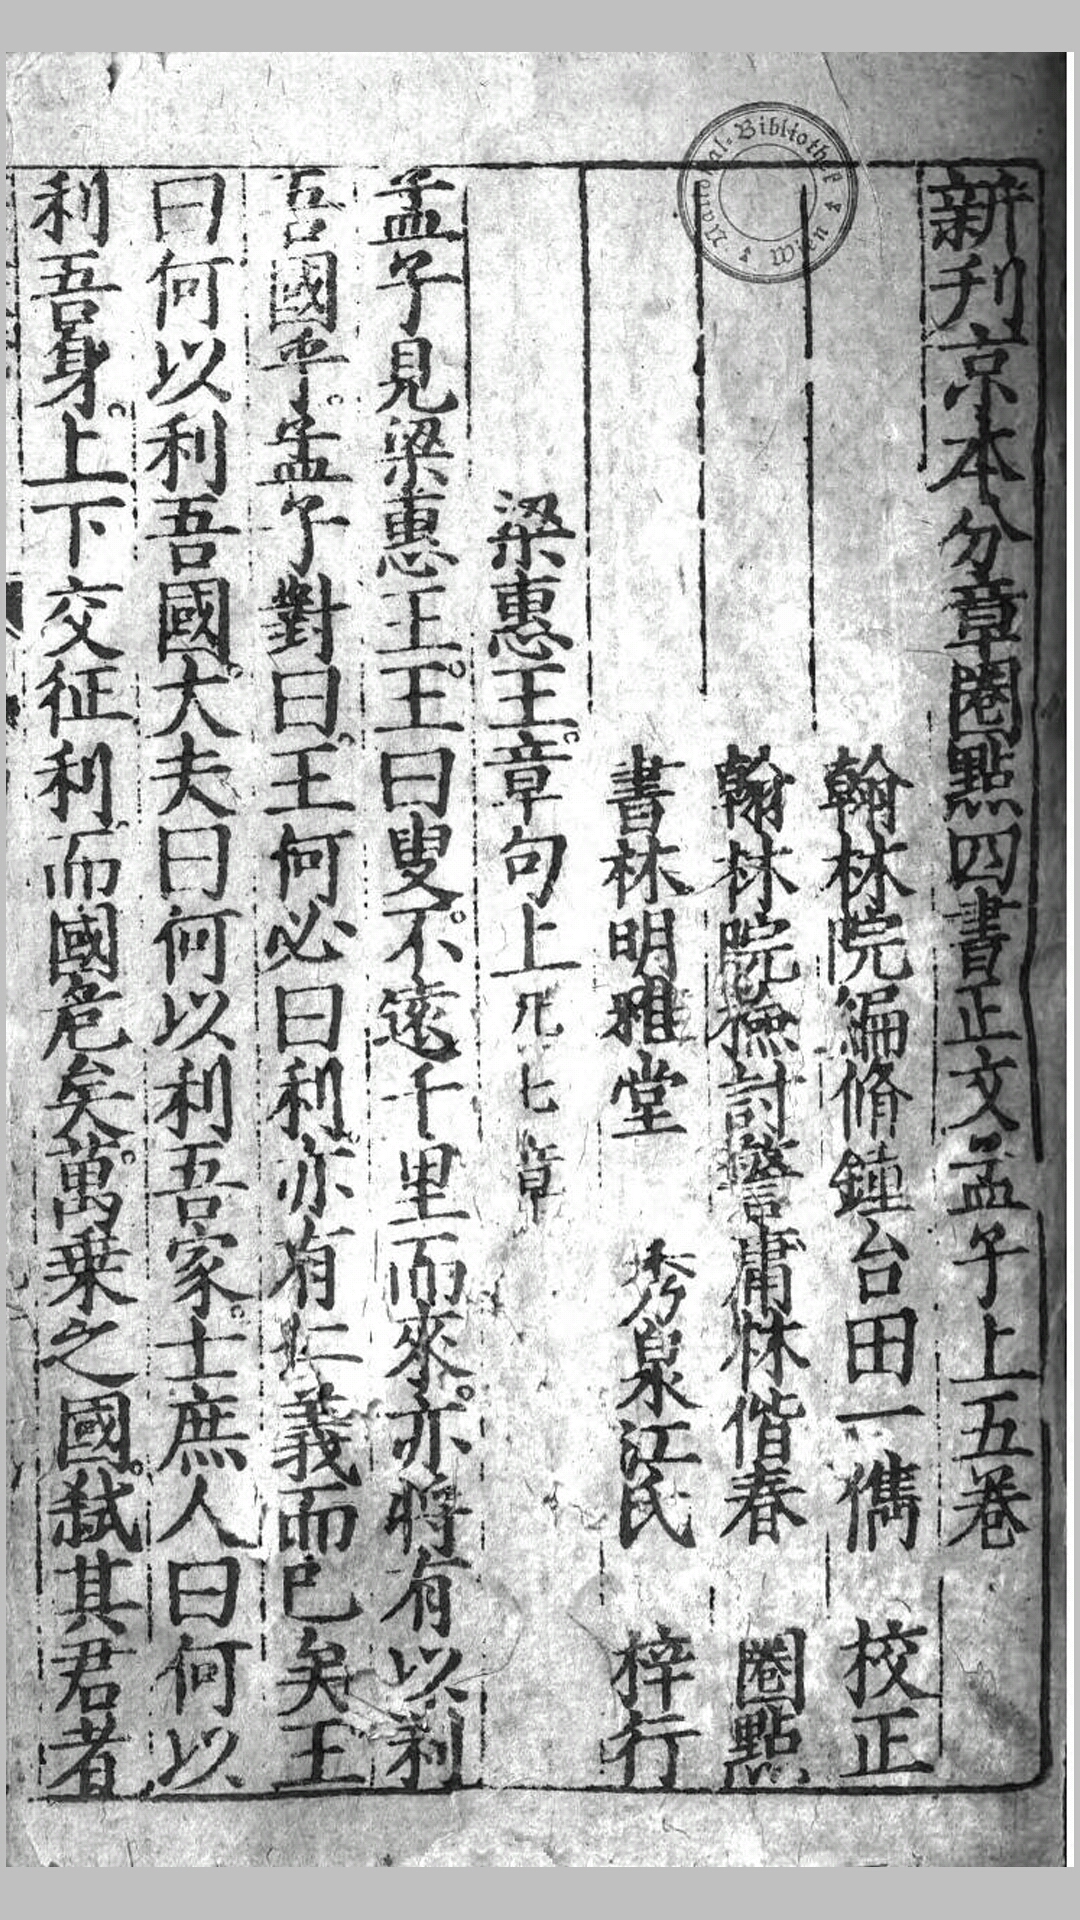 新刋京本分章圏點四書正文孟子上五卷
翰林院編脩鍾台田一儁 校正
翰林院檢討警庸林偕春 圏點
書林明雅堂 秀泉江氏 梓行
梁惠王章句上 凡七章
孟子見梁惠王王曰叟不遠千里而來亦將有以利
吾國乎孟子對曰王何必曰利亦有仁義而已矣王
曰何以利吾國大夫曰何以利吾家士庶人曰何以
利吾身上下交征利而國危矣萬乗之國弑其君者
National-Bibliothek Wien